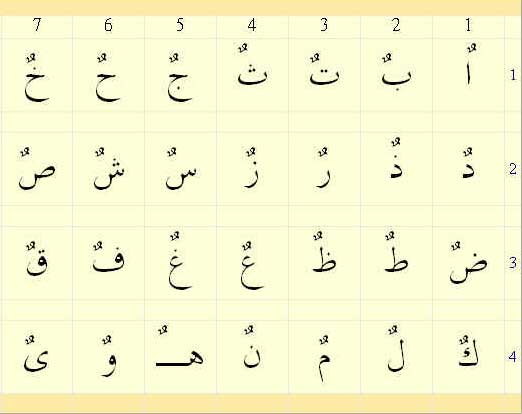 1 2 3 4 5 6 7
1 اٌ بٌ تٌ ثٌ جٌ حٌ خٌ
2 دٌ ذٌ رٌ زٌ سٌ شٌ صٌ
3 ضٌ طٌ ظٌ عٌ غٌ فٌ قٌ
4 كٌ لٌ مٌ نٌ هـٌ وٌ ىٌ